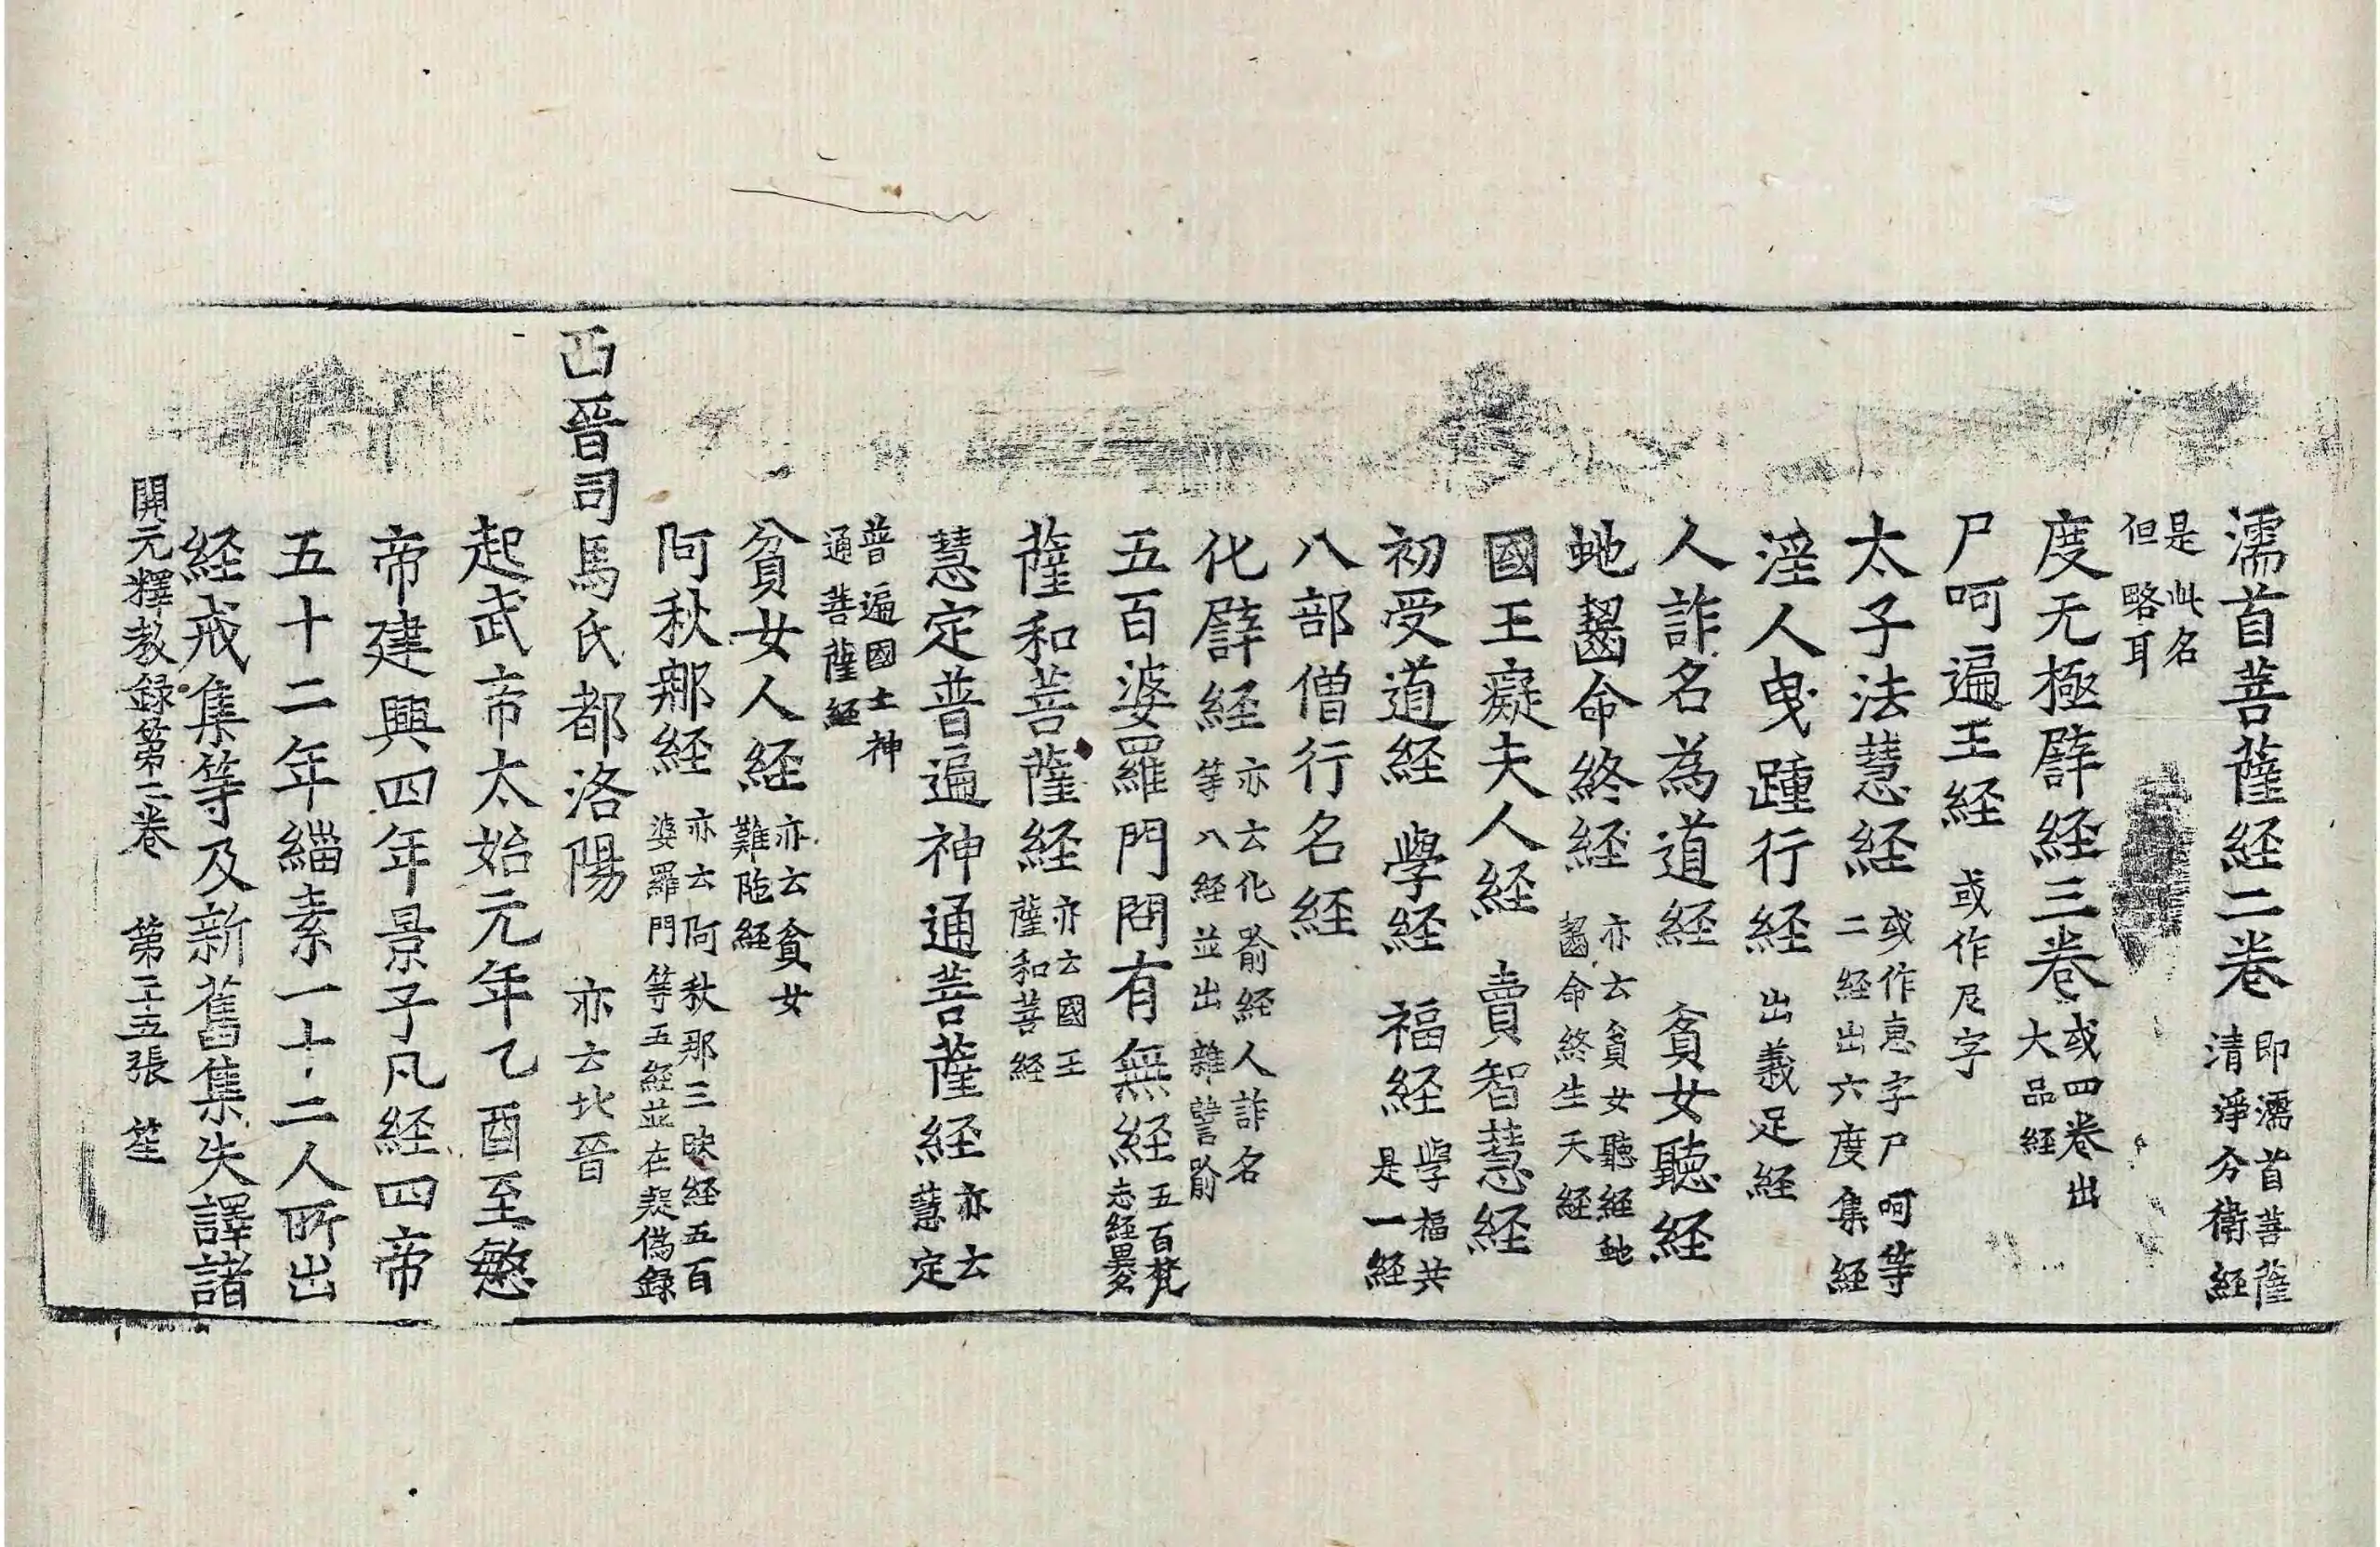 濡首菩薩経二卷 即濡首菩薩清淨分衛経
是此名但略耳
度无極譬経三卷 或四卷出大品経
尸呵遍王経 或作尼字
太子法慧経 或作恵字尸呵等二経出六度集経
淫人曳踵行経 出義足経
人詐名為道経 貧女聽経
虵齧命終経 亦云貧女聽経虵齧命終生天経
國王癡夫人経 賣智慧経
初受道経 學経 福経 學福共是一経
八部僧行名経
化譬経 亦云化喻経人詐名等八経並出雜譬喻
五百婆羅門問有無経 五百梵志経異
薩和菩薩経 亦云國王薩和菩経
慧定普遍神通菩薩経 亦云慧定
普遍國土神通菩薩経
貧女人経 亦云貧女難陁経
阿秋那経 亦云阿秋那三昧経五百婆羅門等五経並在疑偽録
西晉司馬氏都洛陽 亦云北晉
起武帝太始元年乙酉至愍
帝建興四年景子凡経四帝
五十二年緇素一十二人所出
経戒集等及新舊集失譯諸
開元釋教録第二卷 第三五張 笙